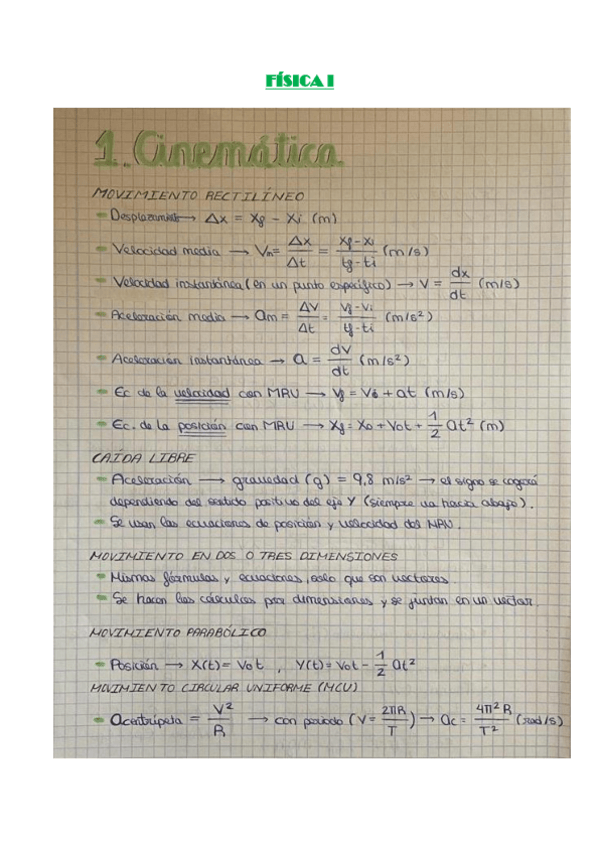 FÍSICA I
1. Cinemática
MOVIMIENTO RECTILÍNEO
- Desplazamiento → Δx = Xf - Xi (m)
- Velocidad media → Vm = Δx/Δt = (Xf - Xi)/(tf - ti) (m/s)
- Velocidad instantánea (en un punto específico) → V = dx/dt (m/s)
- Aceleración media → am = ΔV/Δt = (Vf - Vi)/(tf - ti) (m/s²)
- Aceleración instantánea → a = dV/dt (m/s²)
- Ec de la velocidad con MRU → Vf = V0 + at (m/s)
- Ec. de la posición con MRU → Xf = X0 + V0t + 1/2 at² (m)
CAÍDA LIBRE
- Aceleración → gravedad (g) = 9,8 m/s² → el signo se cogerá
dependiendo del sentido positivo del eje Y (siempre va hacia abajo).
- Se usan las ecuaciones de posición y velocidad del MRU.
MOVIMIENTO EN DOS O TRES DIMENSIONES
- Mismas fórmulas y ecuaciones, solo que son vectores.
- Se hacen los cálculos por dimensiones y se juntan en un vector.
MOVIMIENTO PARABÓLICO
- Posición → X(t) = V0t , Y(t) = V0t - 1/2 at²
MOVIMIENTO CIRCULAR UNIFORME (MCU)
- acentrípeta = V²/R → con periodo (V = 2πR/T) → ac = 4π²R/T² (rad/s)